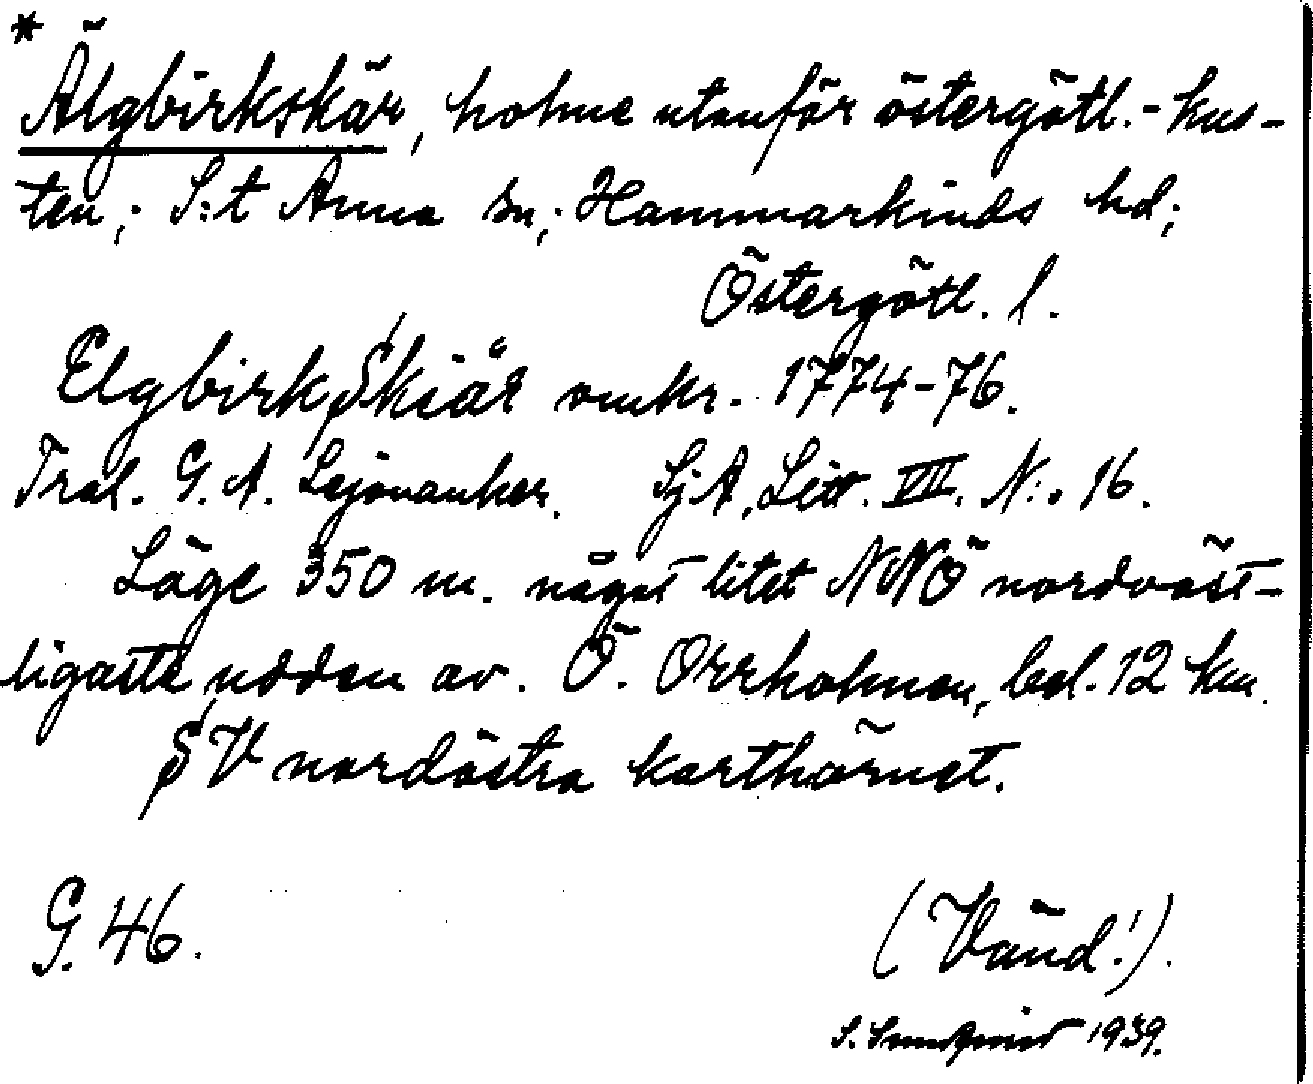 *
Älgbirkskär, holme utanför östergötl.-kus-
ten; S:t Anna sn; Hammarkinds hd;
Östergötl. l.
ElgbirkSkiär omkr. 1774-76.
Tral. G. A. Lejonanker. SjA, Litt. VII. N:o 16.
Läge 350 m. något litet NNÖ nordväst-
ligaste udden av. Ö. Orrholmen, bel. 12 km.
SV nordöstra karthörnet.
G. 46.
(Vänd!).
S. Sundqvist 1939.